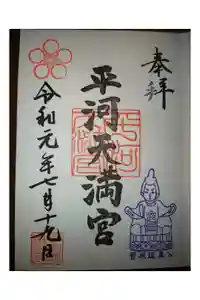 奉拝
平河天満宮
令和元年七月十九日